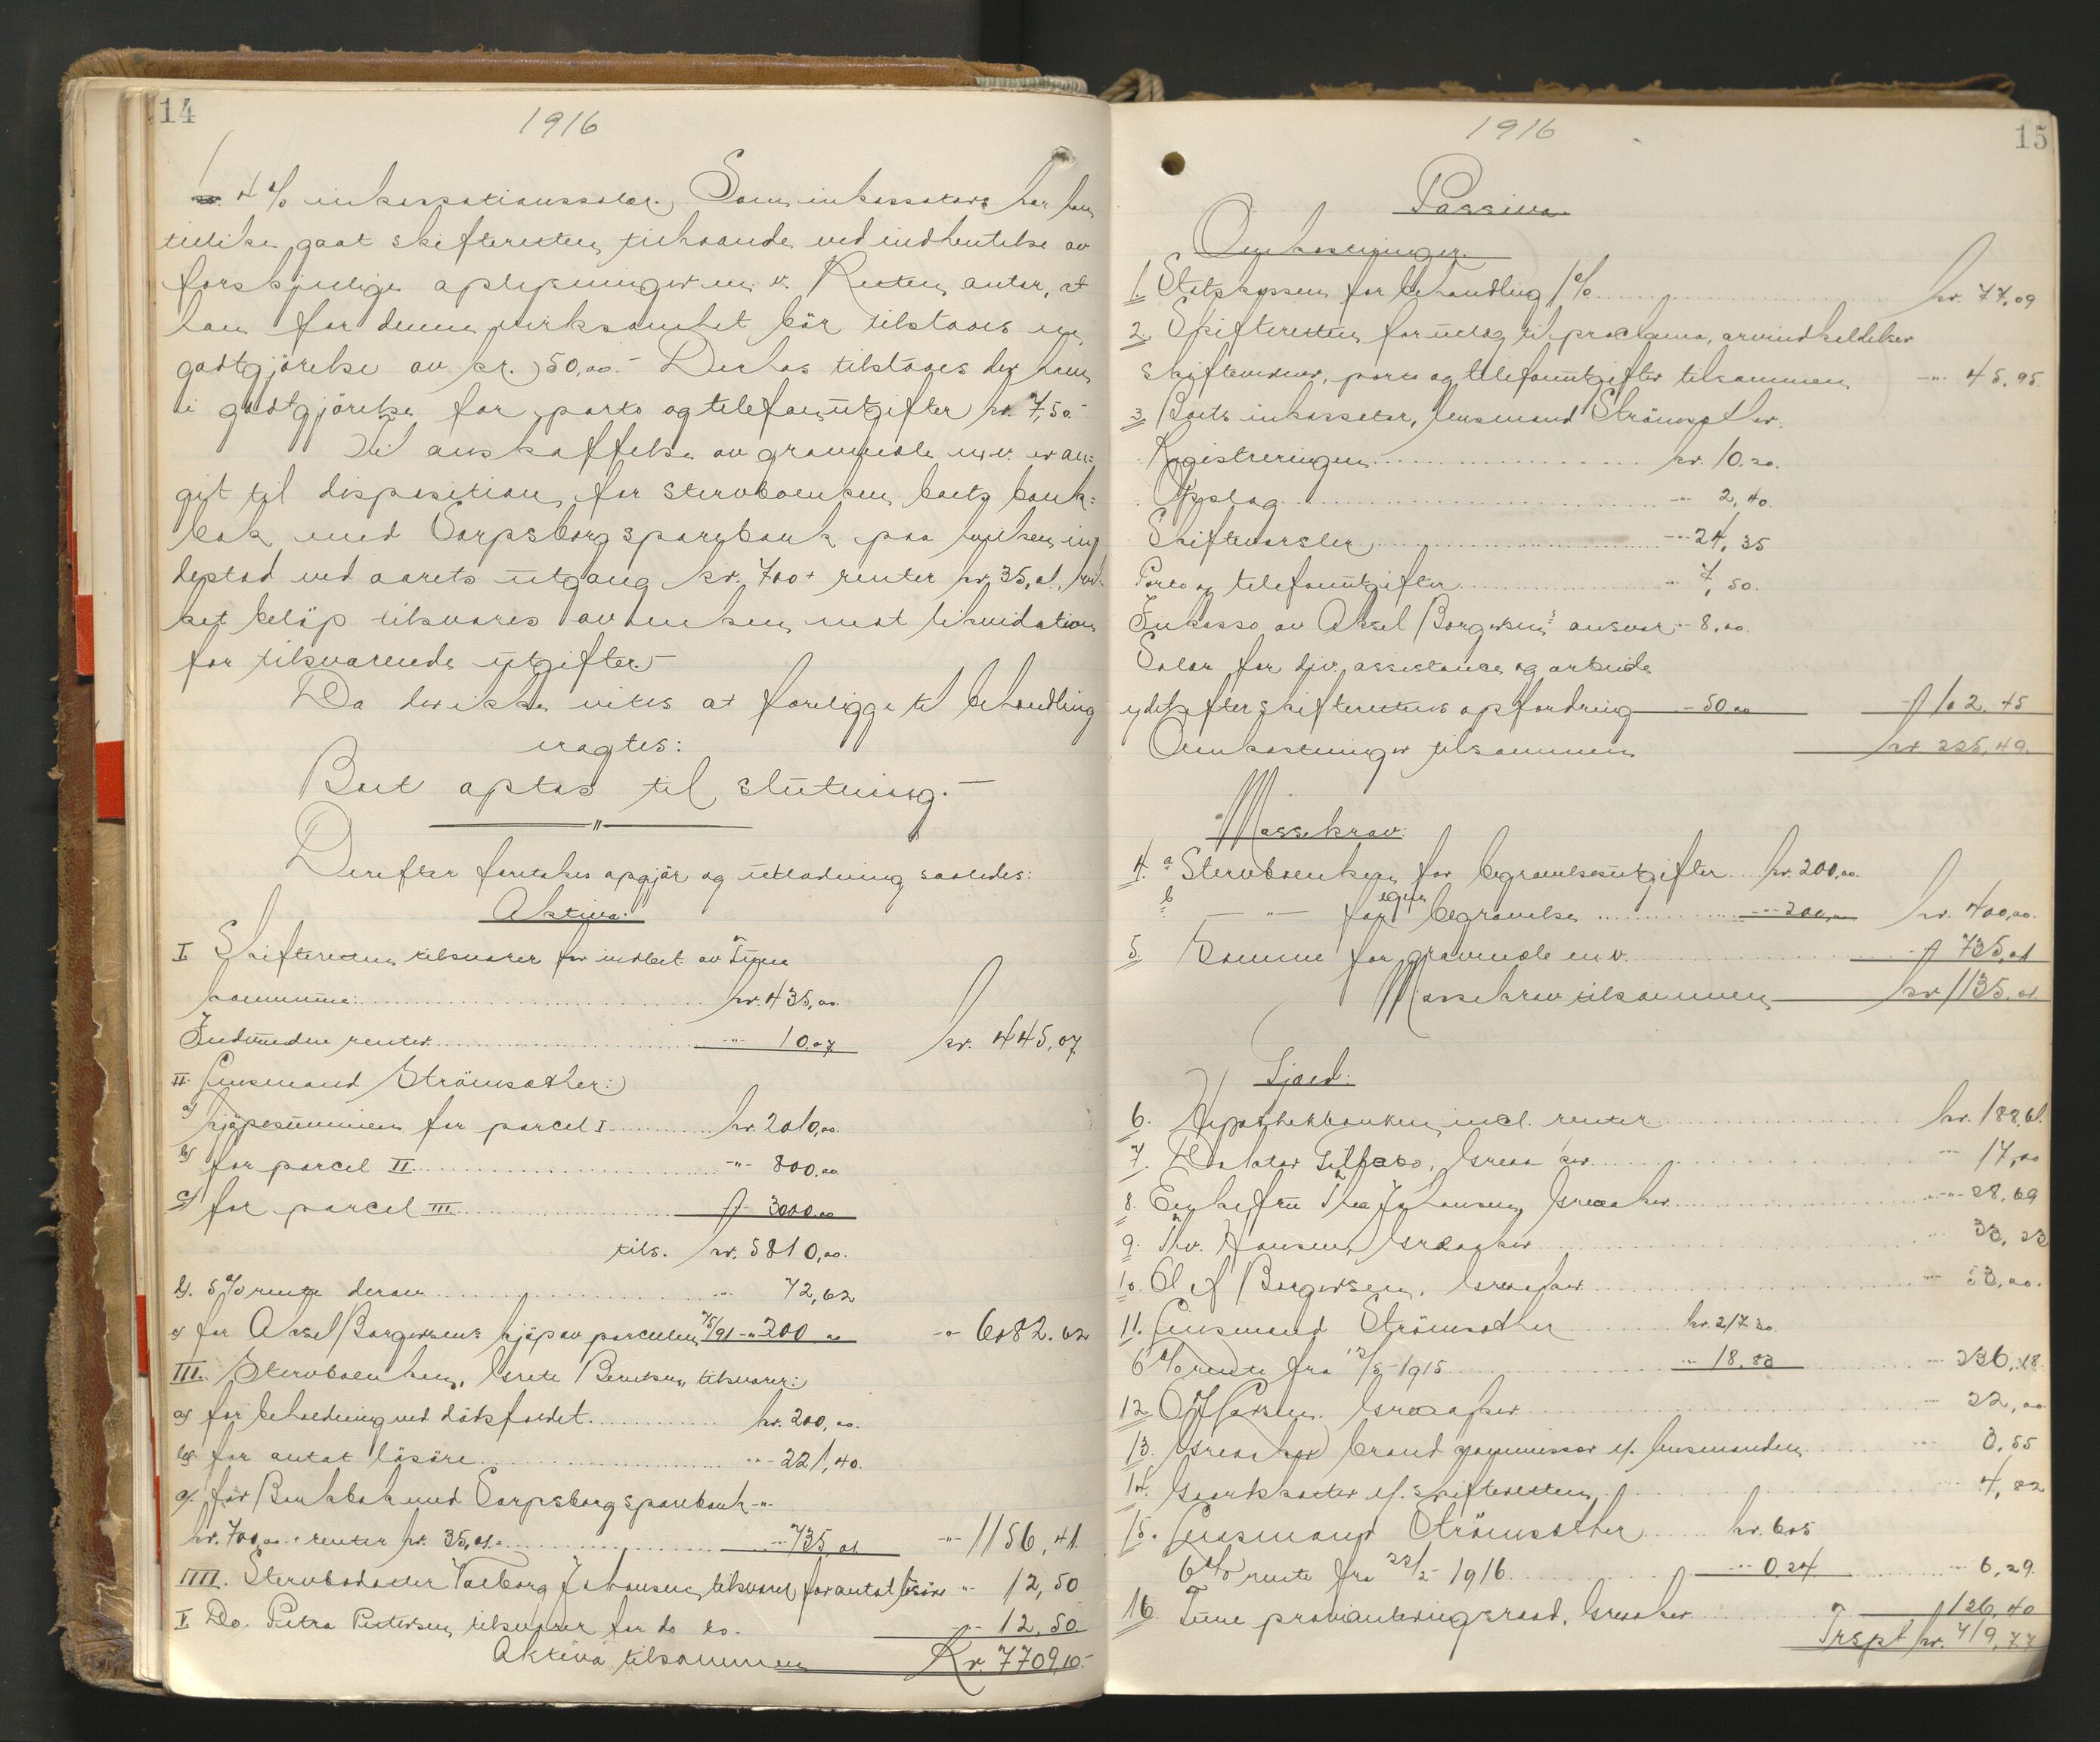 14
1916
4 % inkassationssalær. Som inkassator har han
tillike gaat skifteretten tilhaande ved indhentelse av
forskjellige oplysninger m. v. Retten antar, at
han for denne virksomhet bör tilstaaes en
godtgjörelse av kr. 50,00.- Derhos tilstaaes der ham
i godtgjörelse for porto og telefonutgifter kr. 7,50.-
Til anskaffelse av gravmæle m. v. er av-
git til disposition for stervboenken boets bank-
bok med Sarpsborg sparebank paa hvilken ind-
destod ved aarets utgang kr. 700 + renter kr. 35,01, hvil-
ket belöp tilsvares av enken mot likvidation
for tilsvarende utgifter.-
Da der ikke vites at foreligge til behandling
eragtes:
Boet optas til slutning.-
Derefter foretokes opgjör og utlodning saaledes:
Aktiva:
I Skifteretten tilsvarer for indbet. av Tune
kommune: kr. 435,00.
Indvundne renter " 10,07 kr. 445,07
II. Lensmand Strömsæther:
a) kjöpesummen for parcel I kr. 2010,00.
b) for parcel II " 800,00.
c) for parcel III " 3000.00
tils. kr. 5810,00.
d). 5 % rente derav " 72,62
e) for Aksel Borgersens kjöp av parcellen " 200 00 " 6082.62
III. Stervboenken, Grete tilsvarer:
a) for beholdning ved dödsfaldet. kr. 200,00.
b) for antat lösöre " 221,40.
c). for Bankbok med Sarpsborg sparebank "
kr. 700,00 + renter kr. 35,01.= " 735,01 " 1156,41.
IIII. Stervbodatter Valborg Johansen tilsvarer for antat lösöre " 12,50
V Do. Petra Pettersen tilsvarer for do do. " 12,50
Aktiva tilsammen Kr. 7709,10.-
15
1916
Passiva.
Omkostninger.
1. Statskassen for behandling 1% kr. 77,09
2. Skifteretten for utlæg til proclama, arveindkaldelser
skiftevarsler, porto og telefonutgifter tilsammen " 45,95.
3. Boets inkassator, lensmand Strömsæther.
Registreringen kr. 10.20.
Opslag " 2,40.
Skiftevarsler " 24,35
Porto og telefonutgifter " 7,50.
Inkasso av Aksel Borgersens ansvar " 8,00.
Salær for div. assistance og arbeide
ydet efter skifterettens opfordring " 50 00 " 102,45
Omkostninger tilsammen kr 225,49.
Massekrav:
4. a Stervboenken for begravelsesutgifter kr. 200,00.
b " for egen begravelse " 200,00 kr. 400,00.
5. Samme for gravmæle m. v. " 735,01
Massekrav tilsammen kr 1135,01
Gjæld:
6. Hypothekbanken incl. renter kr. 188,61.
7. Doktor Greaaker " 17,00
8. Enkefru Thea Johansen, Greaaker " 28,69
9. Thv. Hansen, Greaaker " 33,23
10. Olaf Borgersen, Greaaker " 53,00.
11. Lensmand Strömsæther kr. 217.30
6 % rente fra 1915 " 18,83 " 236,18.
12. Greaaker " 22,00
13. Greaaker brandkommissær v/. lensmanden " 3,55
14. v/. skifteretten " 4,82
15. Lensmand Strömsæther kr. 605
6 % rente fra 22/5 1916 " 0,24 " 6,29.
16 Tune provianteringsraad, Greaaker " 126,40
Trspt kr. 719,77